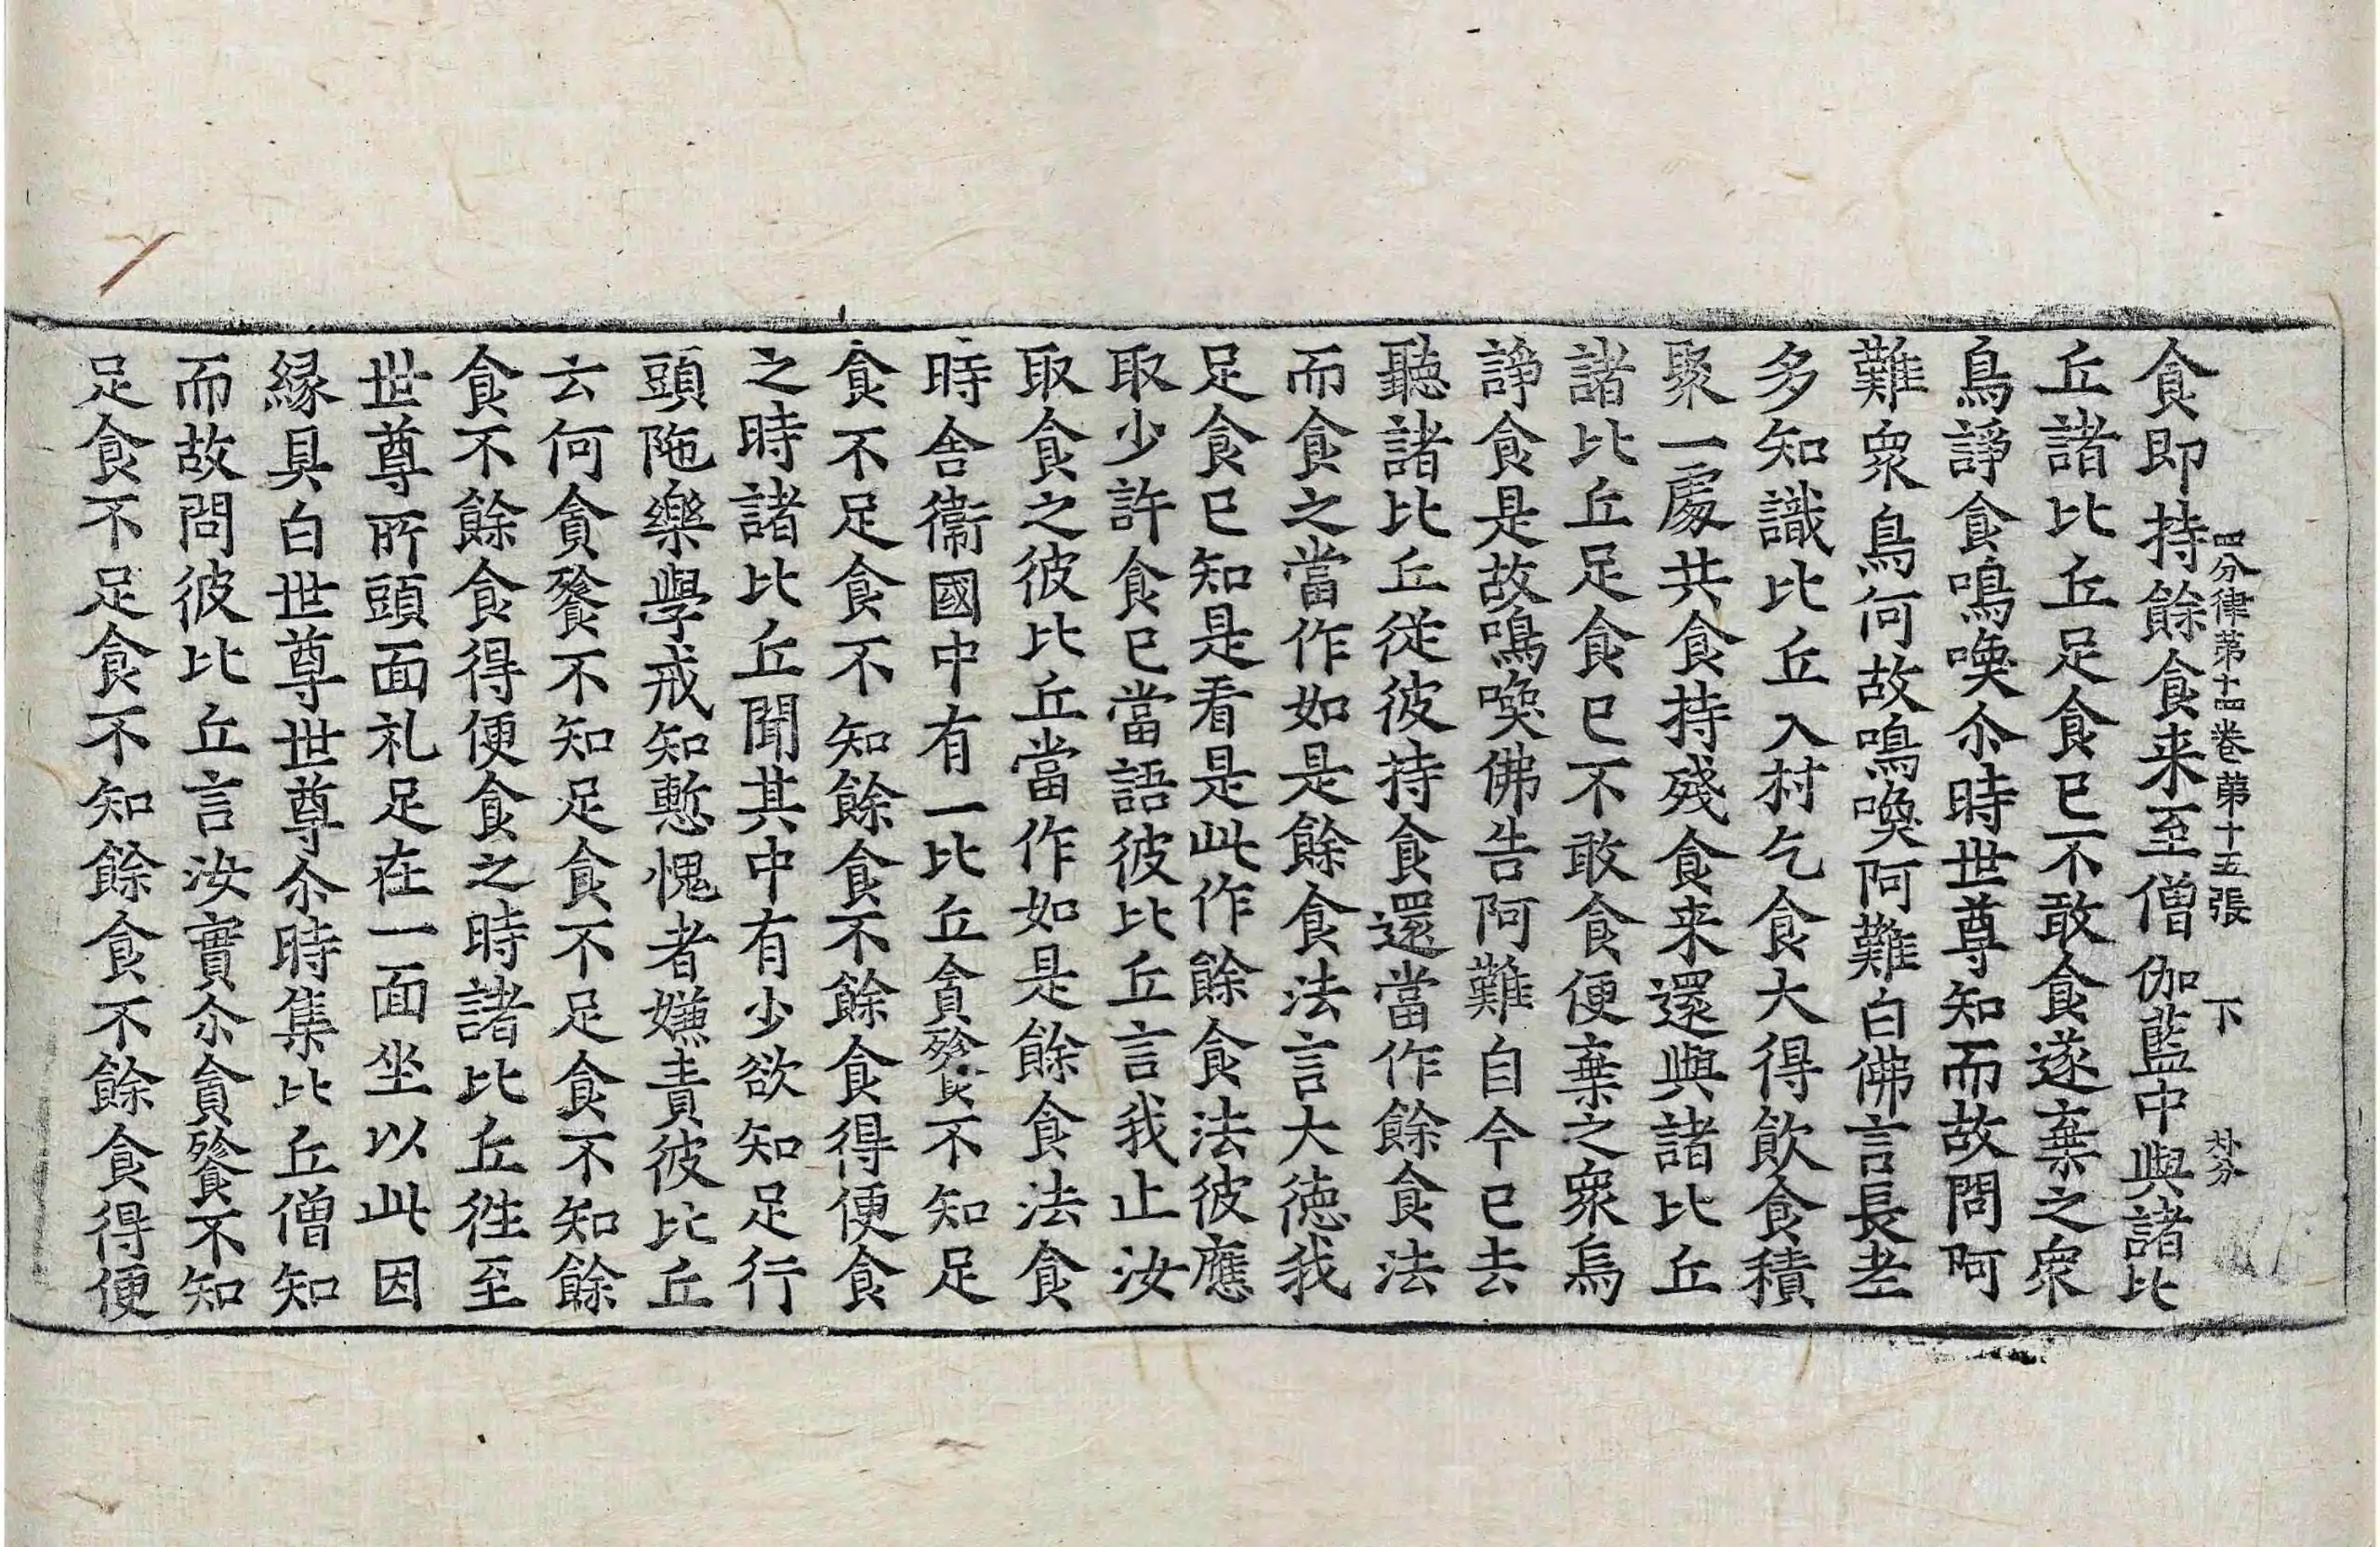 四分律第十四卷第十五張 下
食即持餘食来至僧伽藍中與諸比
丘諸比丘足食已不敢食遂棄之衆
鳥諍食鳴喚尒時世尊知而故問阿
難衆鳥何故鳴喚阿難白佛言長老
多知識比丘入村乞食大得飲食積
聚一處共食持殘食来還與諸比丘
諸比丘足食已不敢食便棄之衆鳥
諍食是故鳴喚佛告阿難自今已去
聽諸比丘從彼持食還當作餘食法
而食之當作如是餘食法言大德我
足食已知是看是此作餘食法彼應
取少許食已當語彼比丘言我止汝
取食之彼比丘當作如是餘食法食
時舍衞國中有一比丘貪飱不知足
食不足食不知餘食不餘食得便食
之時諸比丘聞其中有少欲知足行
頭陁樂學戒知慙愧者嫌責彼比丘
云何貪飱不知足食不足食不知餘
食不餘食得便食之時諸比丘徃至
世尊所頭面礼足在一面坐以此因
縁具白世尊世尊尒時集比丘僧知
而故問彼比丘言汝實尒貪飱不知
足食不足食不知餘食不餘食得便